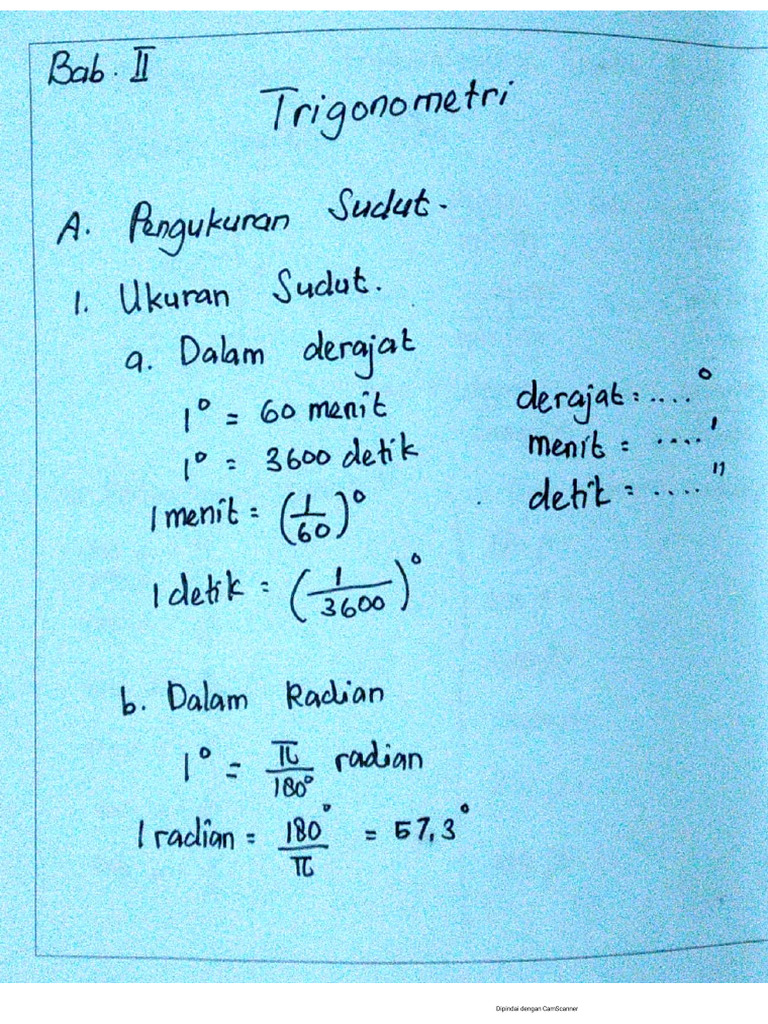 Bab. II
Trigonometri
A. Pengukuran Sudut.
1. Ukuran Sudut.
a. Dalam derajat
1° = 60 menit
derajat = ....°
1° = 3600 detik
menit = ....'
1 menit = (1/60)°
detik = ...."
1 detik = (1/3600)°
b. Dalam Radian
1° = π/180° radian
1 radian = 180°/π = 57,3°
Dipindai dengan CamScanner